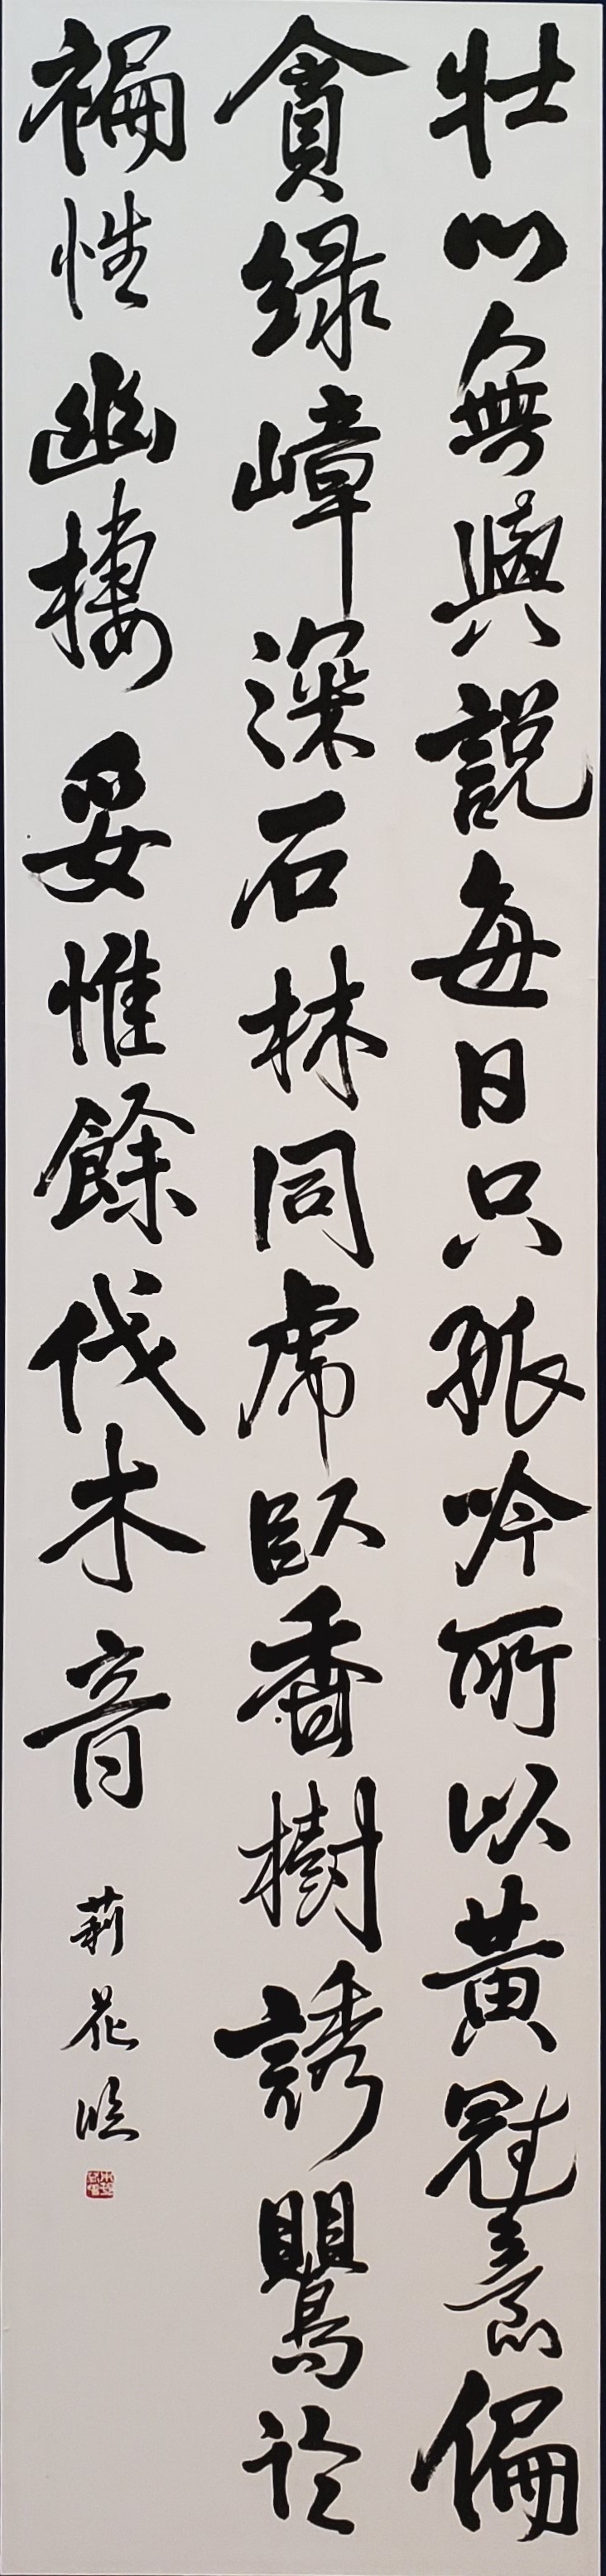 壮心無與説每日只孤吟所以黃冠意偏
貪綠嶂深石林同虎臥香樹誘鸎於
褊性幽棲妥惟餘伐木音
莉花臨